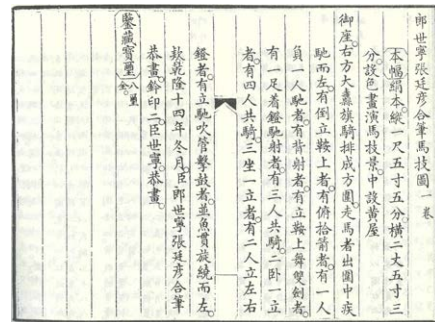 郎世寧張廷彥合筆馬技圖一卷
本幅絹本。縱一尺五寸五分。橫二丈五寸三
分。設色畫演馬技景。中設黃屋
御座。右方大纛旗騎排成方圍。走馬者出圍中疾
馳而左。有倒立鞍上者。有俯拾箭者。有一人
負一人馳者。有背射者。有立鞍上舞雙劍者。
有一足着鐙馳射者。有三人共騎。二卧一立
者。有四人共騎。三坐一立者。有二人立左右
鐙者。有立馳吹管擊鼓者。並魚貫旋繞而左。
款乾隆十四年冬月。臣郎世寧張廷彥合筆
恭畫。鈐印二。臣世寧。恭畫。
鑒藏寶璽 八璽全。